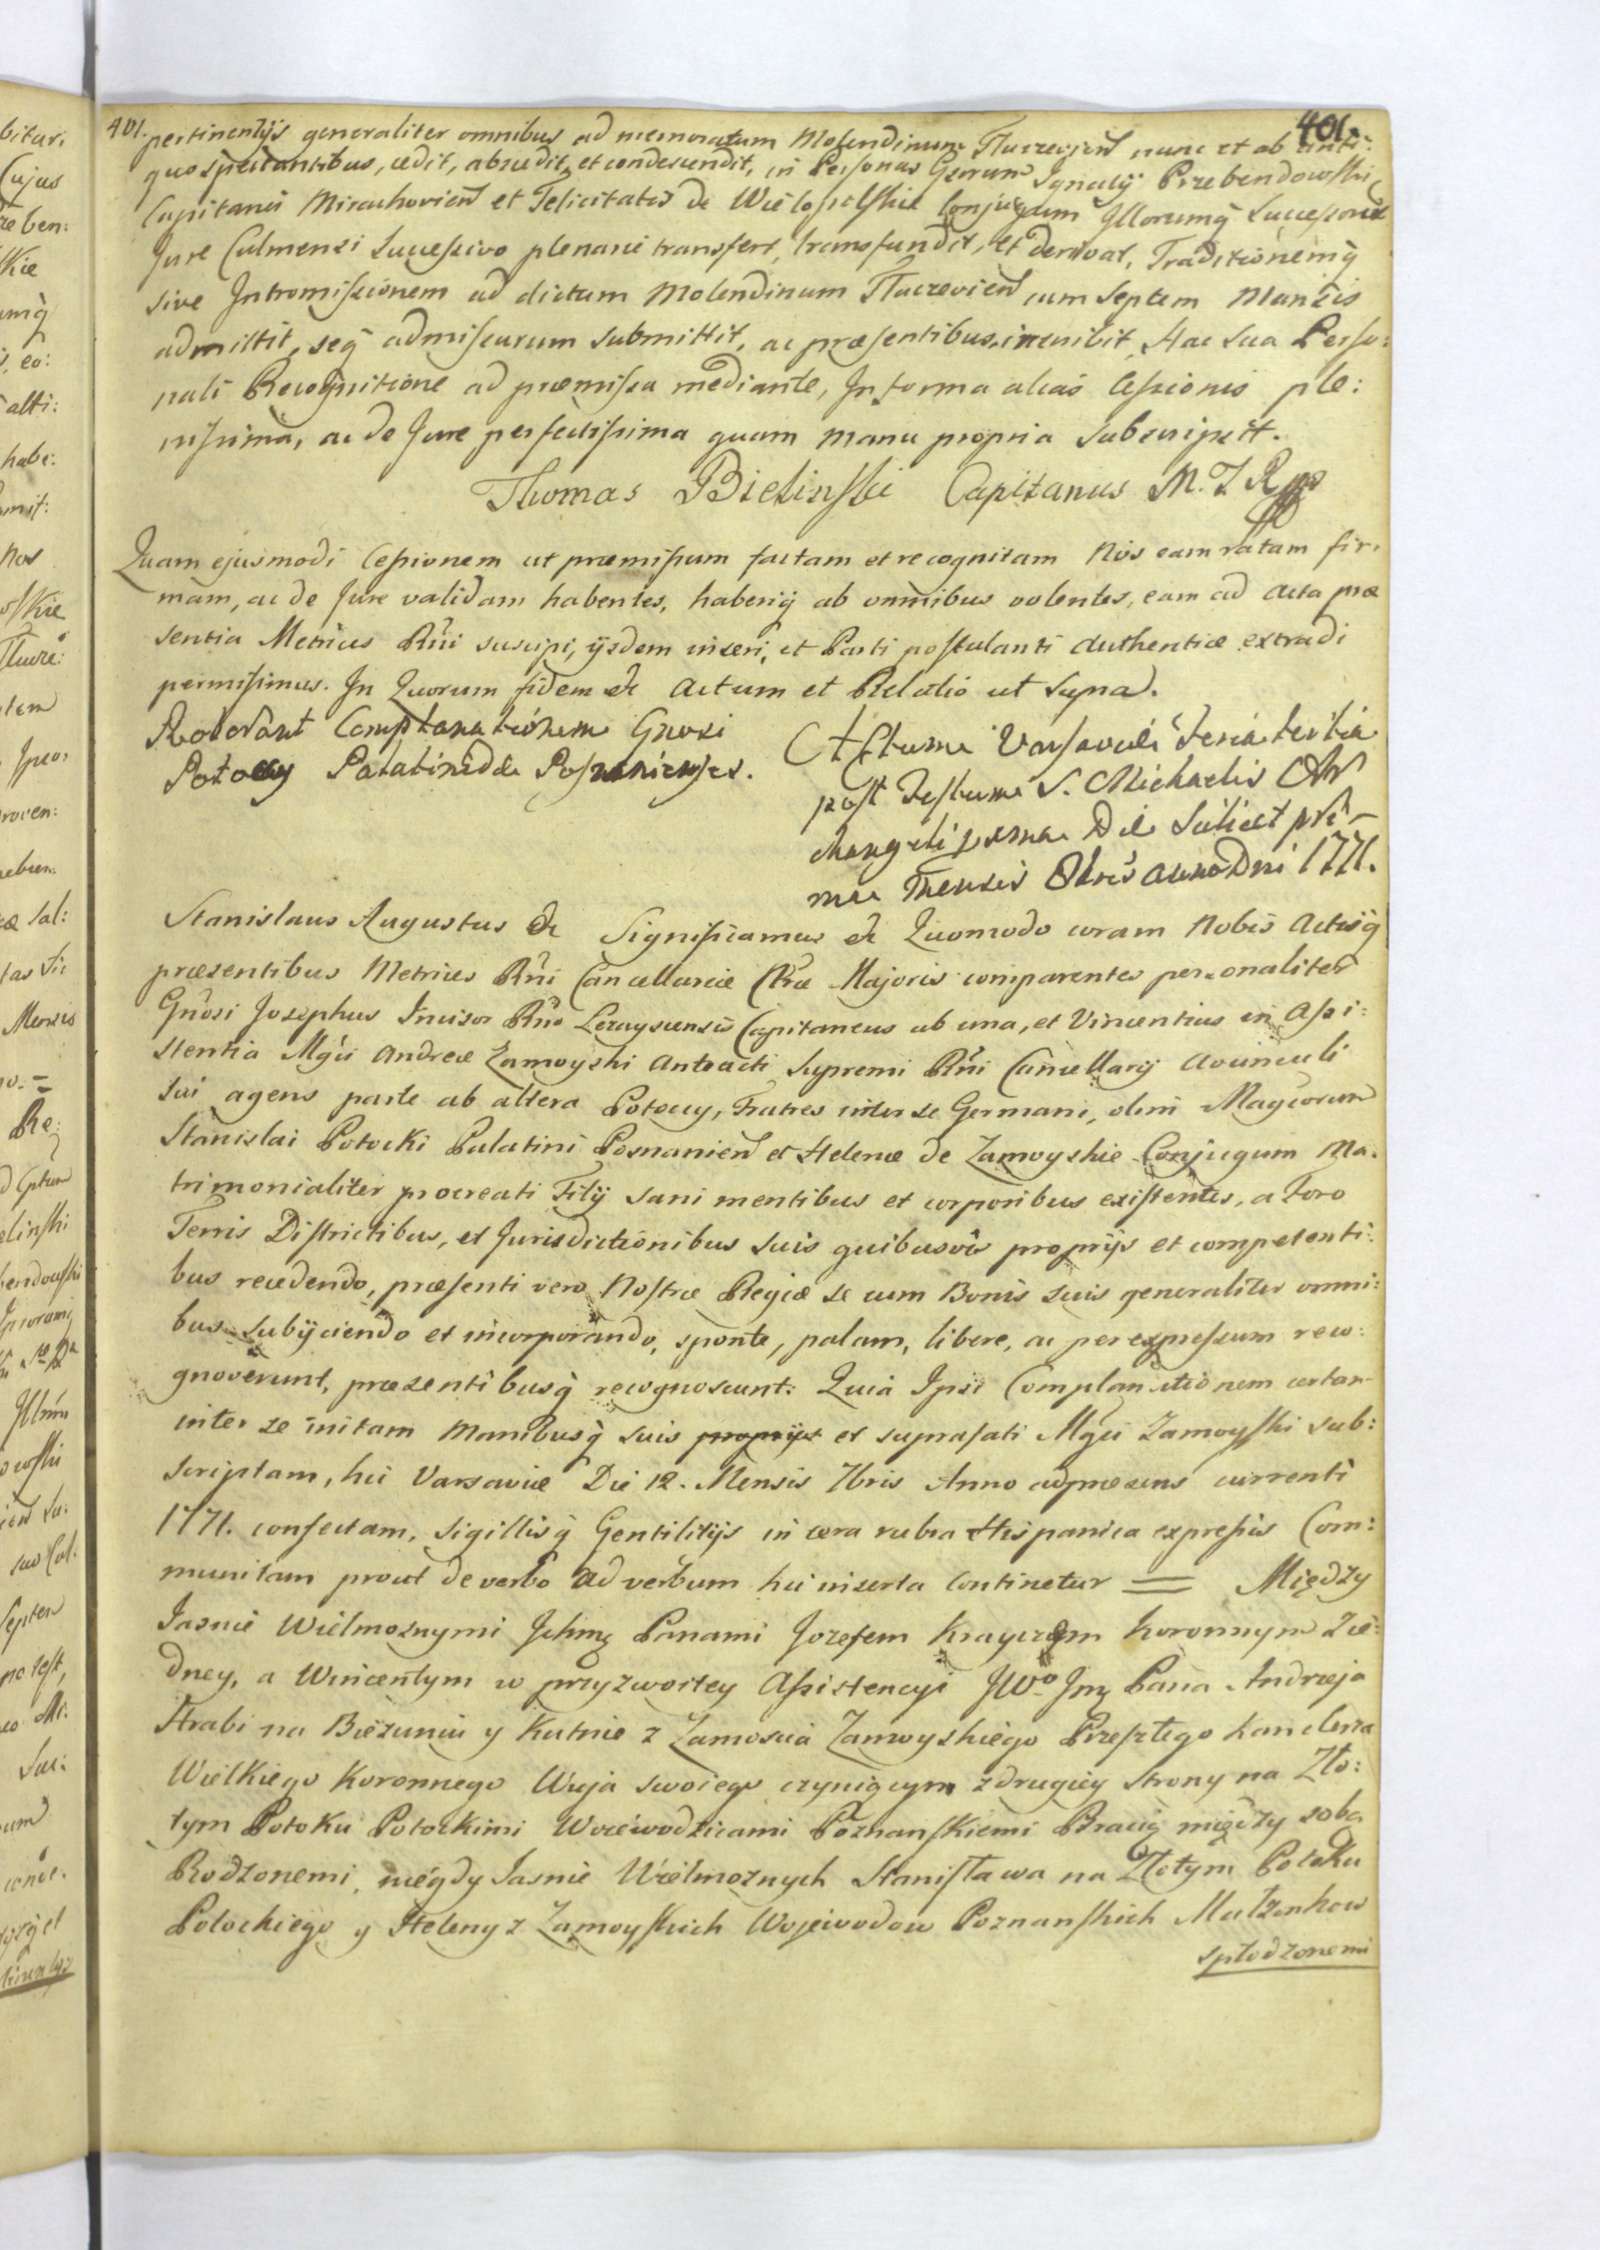 401. 401.
pertinentijs generaliter omnibus ad memoratum Molendinum Tluczevien nunc et ab anti:
quo spectantibus, cedit, abscedit, et condescendit, in Personas Gsorum Ignatij Przebendowski
Capitanei Mirachovien et Felicitatis de Wielopolskie Conjugum Illorumq Successores
Jure Culmensi Successivo plenarie transfert, transfundit, et derivat, Traditionemq
sive Intromissionem ad dictum Molendinum Tluczevien cum Septem Mansis
admittit, seq admissurum submittit, ac præsentibus inscribit, Hac sua Perso:
nali Recognitione ad præmissa mediante, In forma alias Cessionis ple:
nissima, ac de Jure perfectissima quam manu propria subscripsit.
Thomas Bielinski Capitanus M. J. R
Quam ejusmodi Cessionem ut præmissum factam et recognitam Nos eam ratam fir,
mam, ac de Jure validam habentes, haberiq ab omnibus volentes, eam ad Acta præ
sentia Metrices Rni suscipi, ijsdem inseri, et Parti postulanti Authentice extradi
permisimus. In Quorum fidem &c Actum et Relatio ut supra.
Roborant Complanationem Gnosi
Potoccy Palatinidae Posnanienses.
Actum Varsaviæ Feria tertia
post Festum S. Michaelis Ar
changeli ma Die scilicet pri-
ma Mensis 8bris anno Dni 1771.
Stanislaus Augustus &c Significamus &c Quomodo coram Nobis Actisq
præsentibus Metrices Rni Cancellariæ Nræ Majoris comparentes personaliter
Gnosi Josephus Incisor Rni Lezaysensis Capitaneus ab una, et Vincentius in Assi:
stentia Mgci Andreæ Zamoyski Anteacti Supremi Rni Cancellarij Avunculi
sui agens parte ab altera Potoccy, Fratres inter se Germani, olim Magcorum
Stanislai Potocki Palatini Posnanien et Helenæ de Zamoyskie Conjugum Ma.
trimonialiter procreati Filij sani mentibus et corporibus existentes, a Foro
Terris Districtibus, et Jurisdictionibus suis quibusvis proprijs et competenti:
bus recedendo, præsenti vero Nostræ Regiæ se cum Bonis suis generaliter omni:
bus subijciendo et incorporando, sponte, palam, libere, ac per expressum reco:
gnoverunt, præsentibusq recognoscunt: Quia Ipsi Complanationem certam
inter se initam Manibusq suis proprijs et suprafati Mgci Zamoyski sub:
scriptam, hic Varsaviæ Die 12. Mensis 7bris Anno ad præsens currenti
1771. confectam, Sigillisq Gentilitijs in cera rubra Hispanica expressis Com:
munitam prout de verbo ad verbum hic inserta continetur = Między
Jasnie Wielmoznymi Jchmę Panami Jozefem Krayczym Koronnym z ie:
dney, a Wincentym w przyzwoitey Assistencyi JWo Jmę Pana Andrzeja
Hrabi na Biezuniu y Kutnie z Zamoscia Zamoyskiego Przeszłego Kanclerza
Wielkiego Koronnego Wuja swoiego czyniącym z drugiey strony na Zło:
tym Potoku Potockimi Woiewodzicami Poznanskiemi Bracią między sobą
Rodzonemi, niegdy Jasnie Wielmoznych Stanisława na Złotym Potoku
Potockiego y Heleny z Zamoyskich Wojewodow Poznanskich Małżonkow
spłodzonemi